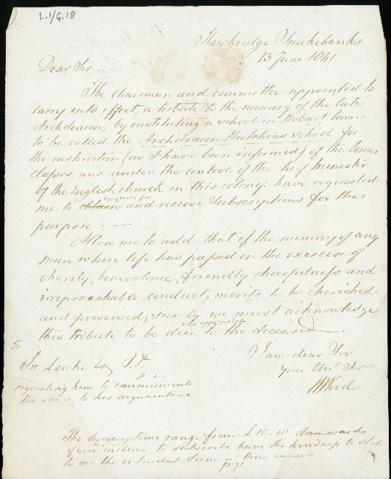 L.1/G.18
Hawkridge Snakebanks
13 June 1841
Dear Sir
The chairman and committee appointed to
carry into effect, a tribute to the memory of the late
Archdeacon, by instituting a school in Hobart Town
to be called the Archdeacon Hutchins School for
the instruction (as I have been informed) of the lower
classes, and under the control of the chief Minister
of the English church in this colony: have requested
me to and receive subscriptions for this
purpose
Allow me to add, that if the memory of any
man whose life has passed in the exercise of
charity, benevolence, friendly cheerfulness and
irreproachable conduct, merits to be cherished
and preserved, surely we must acknowledge
this tribute to be due to the deceased
I am dear Sir
your Obt Ser
To
Jn Leake Esq J.P.
requesting him to communicate
the same to his acquaintance
The subscriptions range from £10-10 downwards
if you incline to subscribe have the kindness to state
to me the intended sum